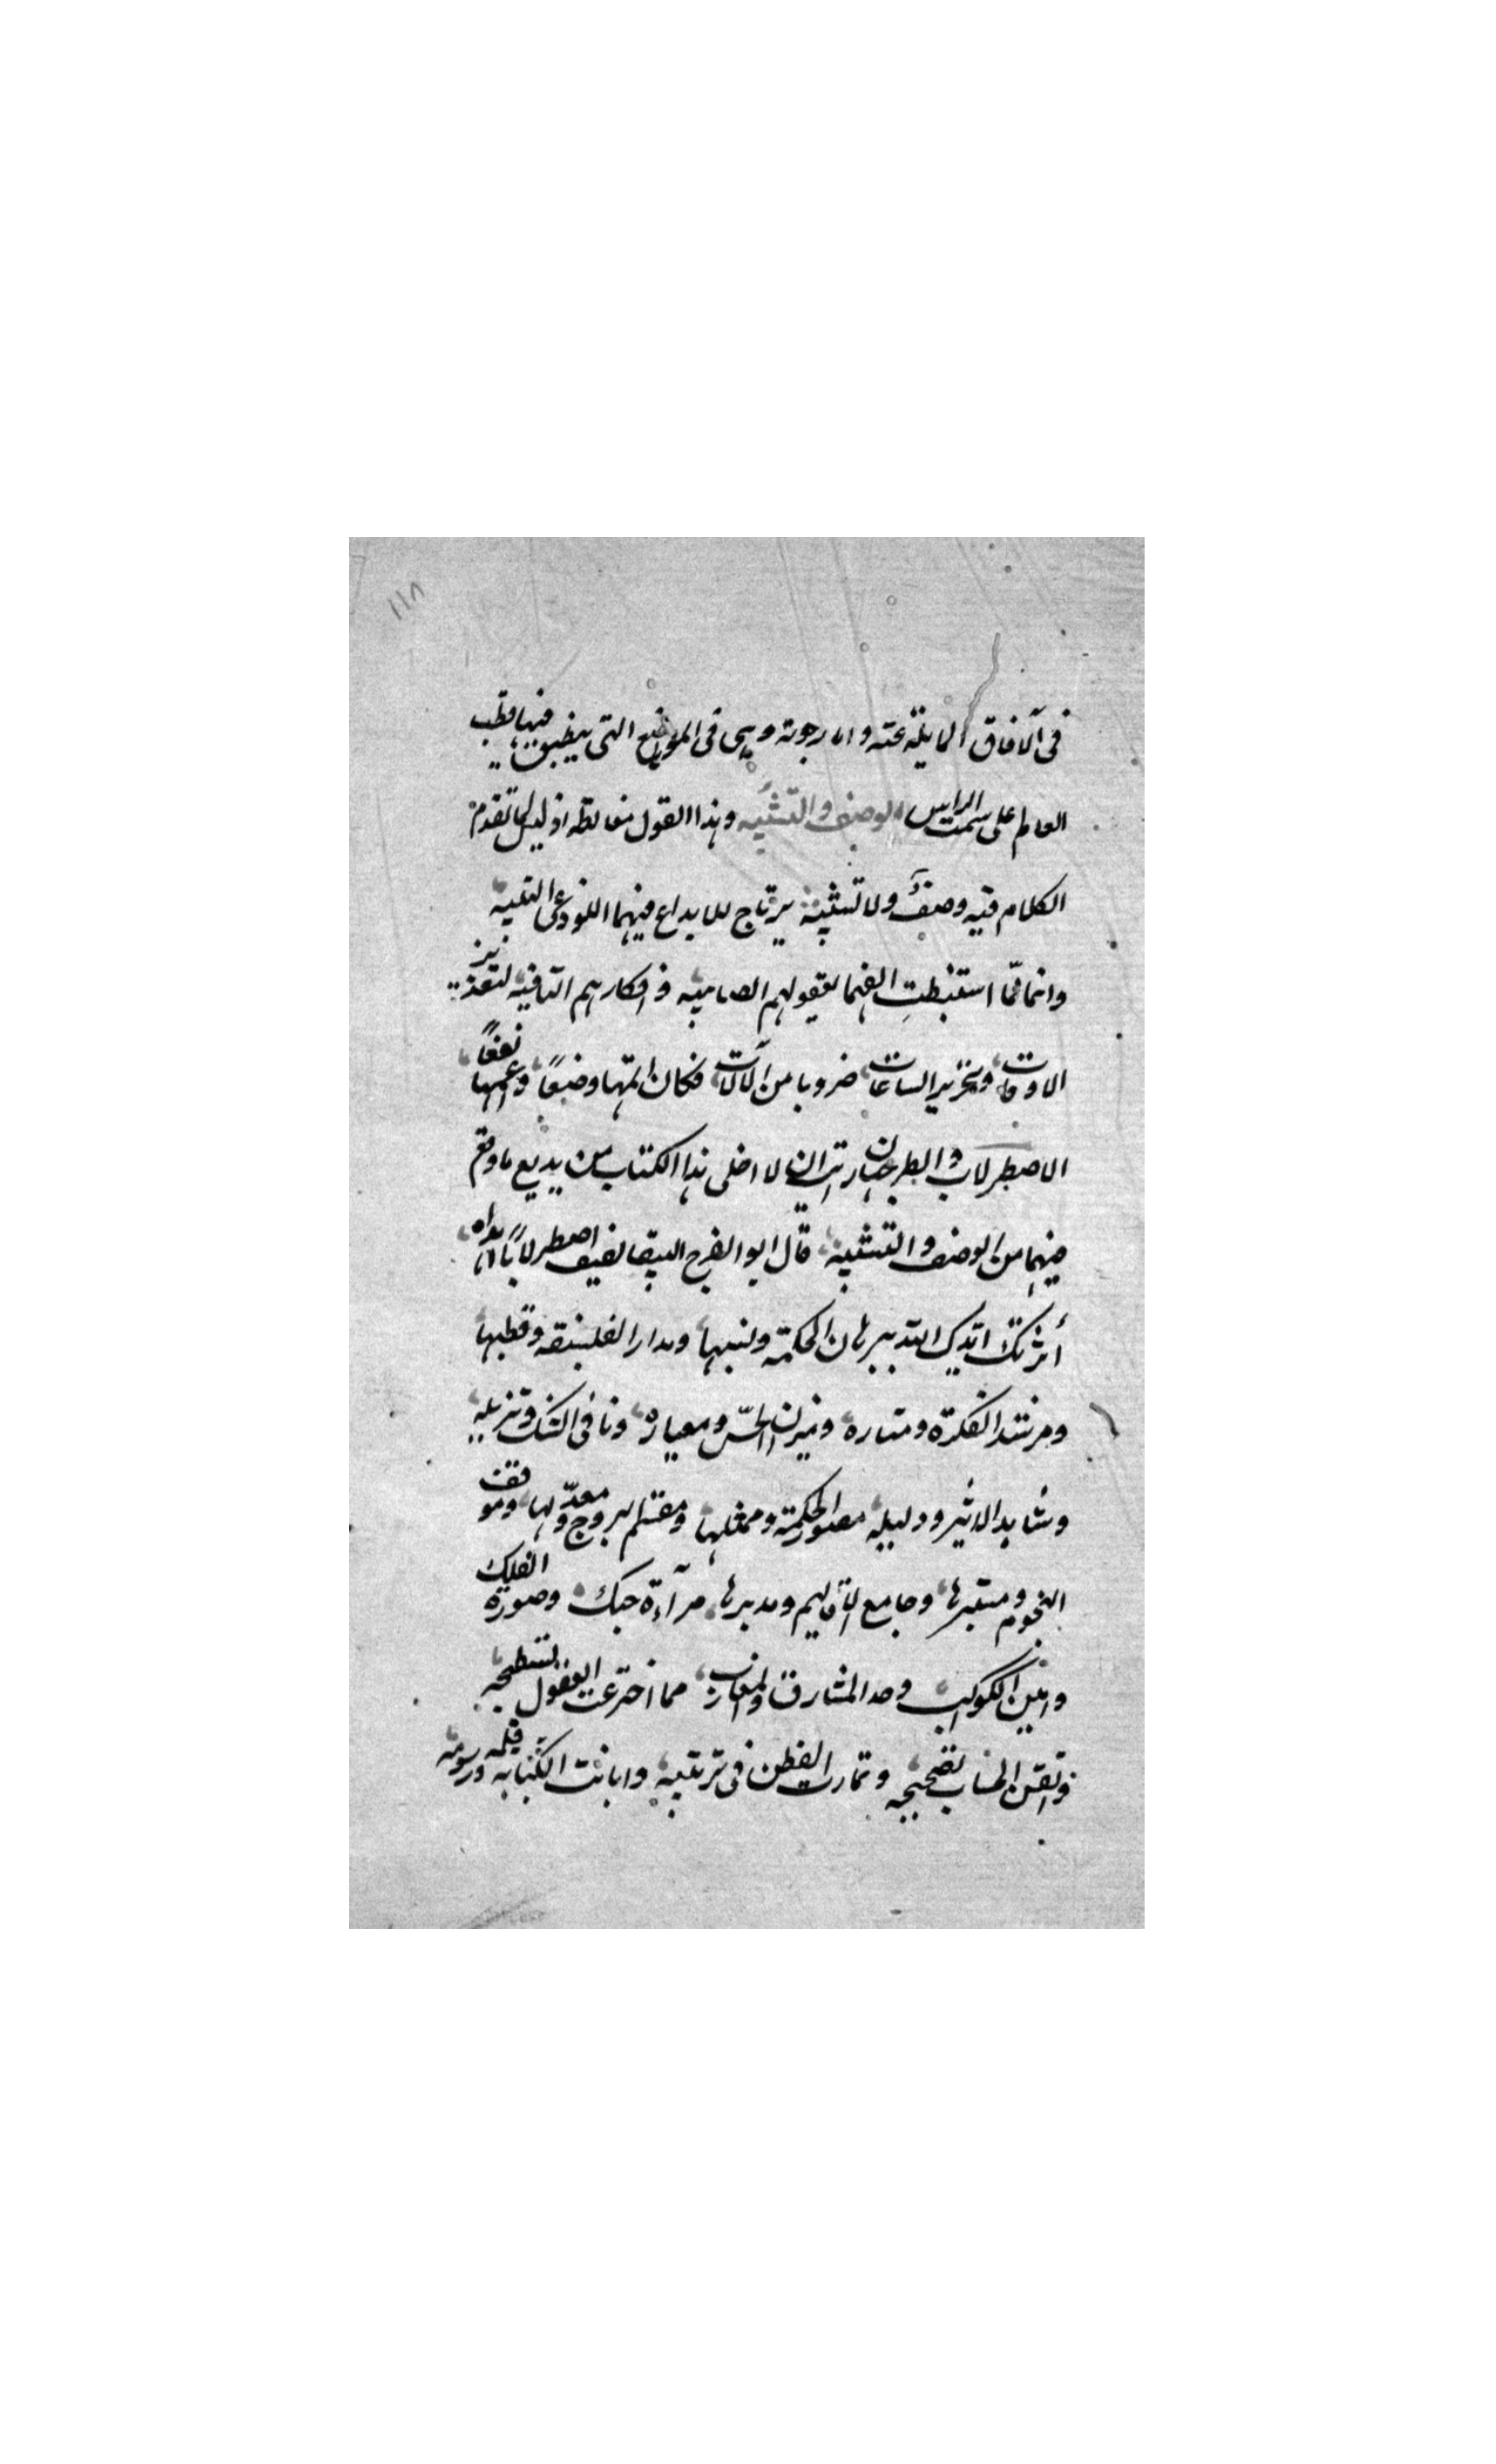 ١١٨
في الآفاق المايلة عنه واما رحوية وهي في المواضع التي ينطبق فيها قطب
العالم على سمت الراس الوصف والتشبيه وهذا القول مغالطه اذ ليس لما تقدم
الكلام فيه وصف ولا تشبيه يرتاح للابداع فيهما اللوذعي النبيه
وانما لما استنبطت الفهما بعقولهم الصايبه وافكارهم الثاقبه لتعذير
الاوقات وتحرير الساعات ضروبا من الآلات فكان اتمها وضعا واعمها نفعًا
الاصطرلاب والطرجهارتان لا اخلى هذا الكتاب من بديع ما وقع
فيهما من الوصف والتشبيه قال ابو الفرج الببغا يصف اصطرلابًا اهداه
آثرتك ايدك الله ببرهان الحكمة ونسبها ومدار الفلسفه وقطبها
ومرشد الفكرة ومناره وميزان الحس ومعياره ونافي الشك ومزيله
وشاهد الاثير ودليله مصور الحكمة وممثلها ومقسم البروج ومعدّلها وموقف
النجوم ومسيرها وجامع الاقاليم ومدبرها مرآءة حبك وصورة الفلك
وامين الكواكب وحد المشارق والمغارب مما اخترعت العقول تسطيحه
واتقن الحساب تصحيحه وتمارت الفطن في ترتيبه وابانت الكتابة